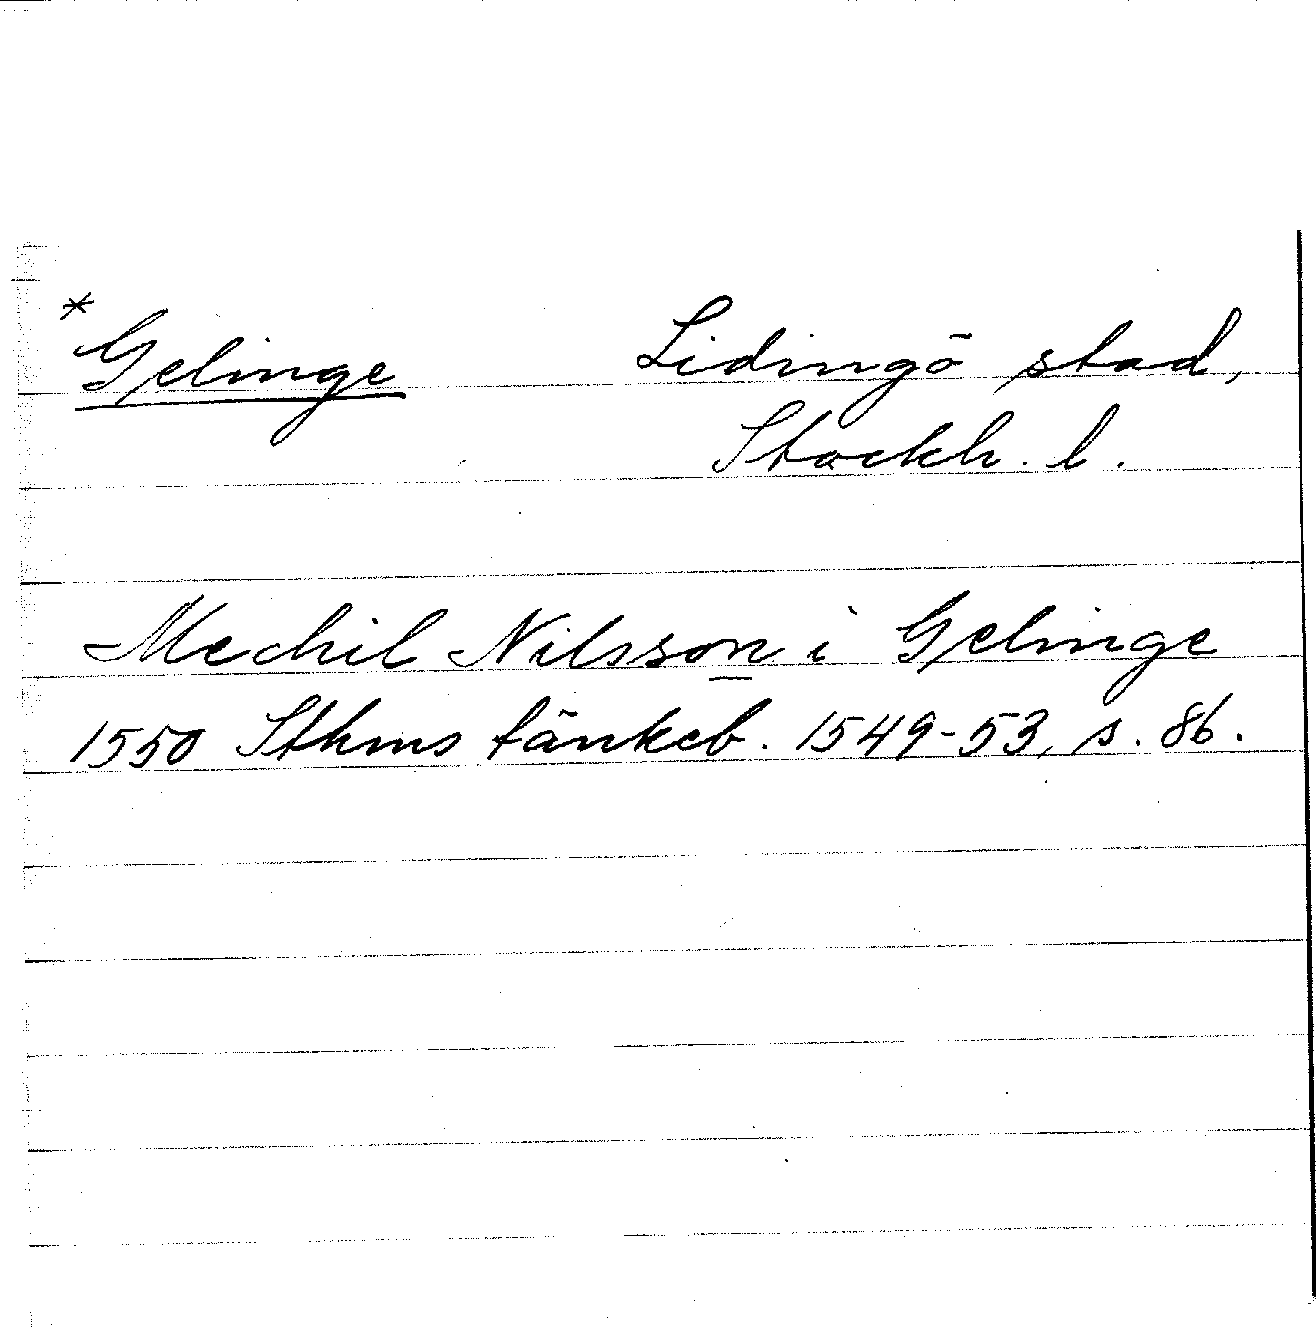 * Gelinge Lidingö stad,
Stockh. l.
Mechil Nilsson i Gelinge
1550 Sthms tänkeb. 1549-53, s. 86.